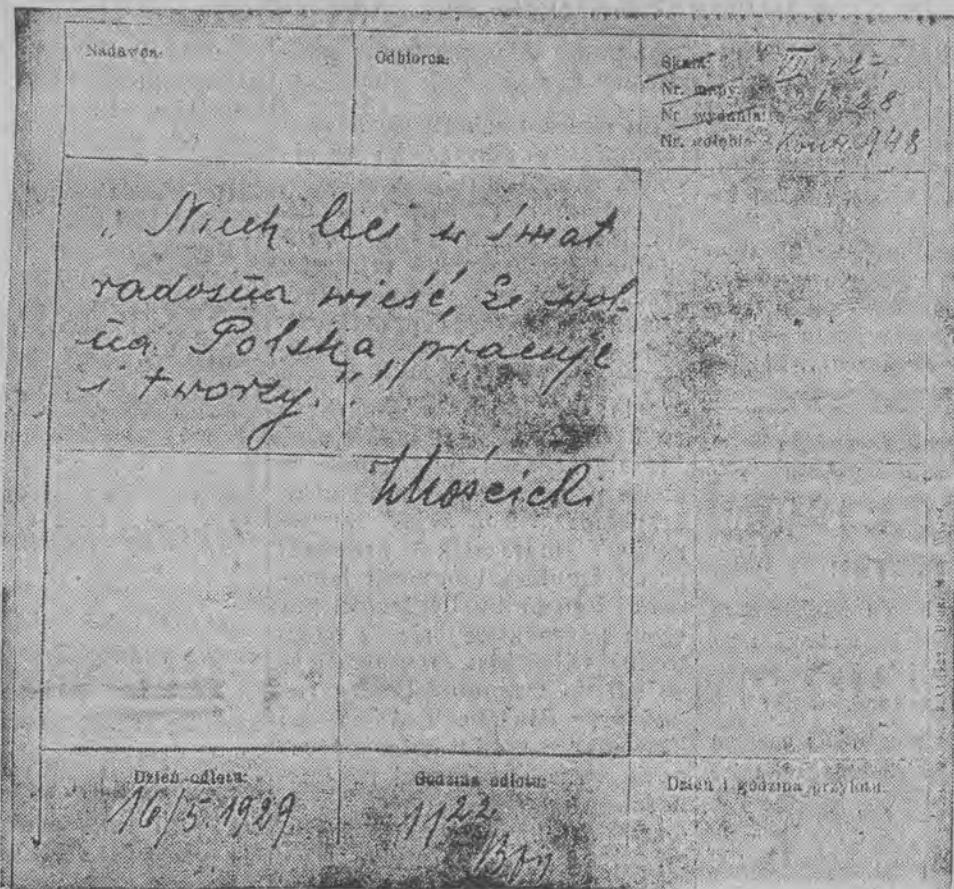 Nadawca:
Odbiorca:
Skala:
Nr. mapy:
Nr. wydania:
Nr. gołębia 948
„Niech leci w świat
radosna wieść, że wol
na Polska, pracuje
i tworzy."
IMościcki
Dzień odlotu:
16/5.1929
Godzina odlotu:
11 22
Dzień i godzina przylotu: